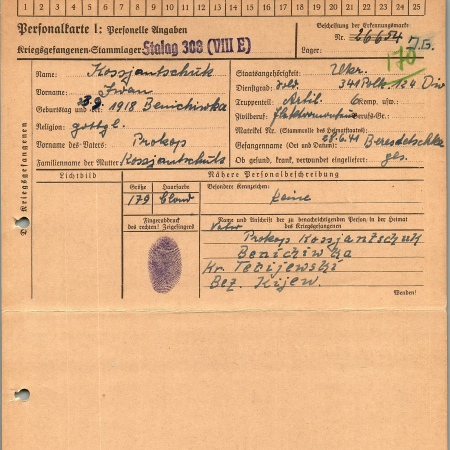 1 2 3 4 5 6 7 8 9 10 11 12 13 14 15 16 17 18 19 20 21 22 23 24 25
Personalkarte I: Personelle Angaben
Kriegsgefangenen-Stammlager: Stalag 308 (VIII E)
Beschriftung der Erkennungsmarke
Nr. 26654
Lager:
170
Des Kriegsgefangenen
Name: Kossjantschuk
Vorname: Iwan
Geburtstag und -ort 1918 Benichiwka
Religion: gottgl.
Vorname des Vaters: Prokop
Familienname der Mutter: Kossjantschuk
Staatsangehörigkeit: Ukr.
Dienstgrad: Sold.
Truppenteil: Artil. Komp. usw.:
Zivilberuf: Beruf-Gr.:
Matrikel Nr. (Stammrolle des Heimatstaates)
Gefangennahme (Ort und Datum): 28.6.41
Ob gesund, krank, verwundet eingeliefert: ges.
Lichtbild
Nähere Personalbeschreibung
Größe Haarfarbe
179 blond
Besondere Kennzeichen:
keine
Fingerabdruck
des rechten! Zeigefingers
Name und Anschrift der zu benachrichtigenden Person in der Heimat
des Kriegsgefangenen
Vater
Prokop Kossjantschuk
Benichiwka
Kr. Tetijewski
Bez. Kijew.
Wenden!